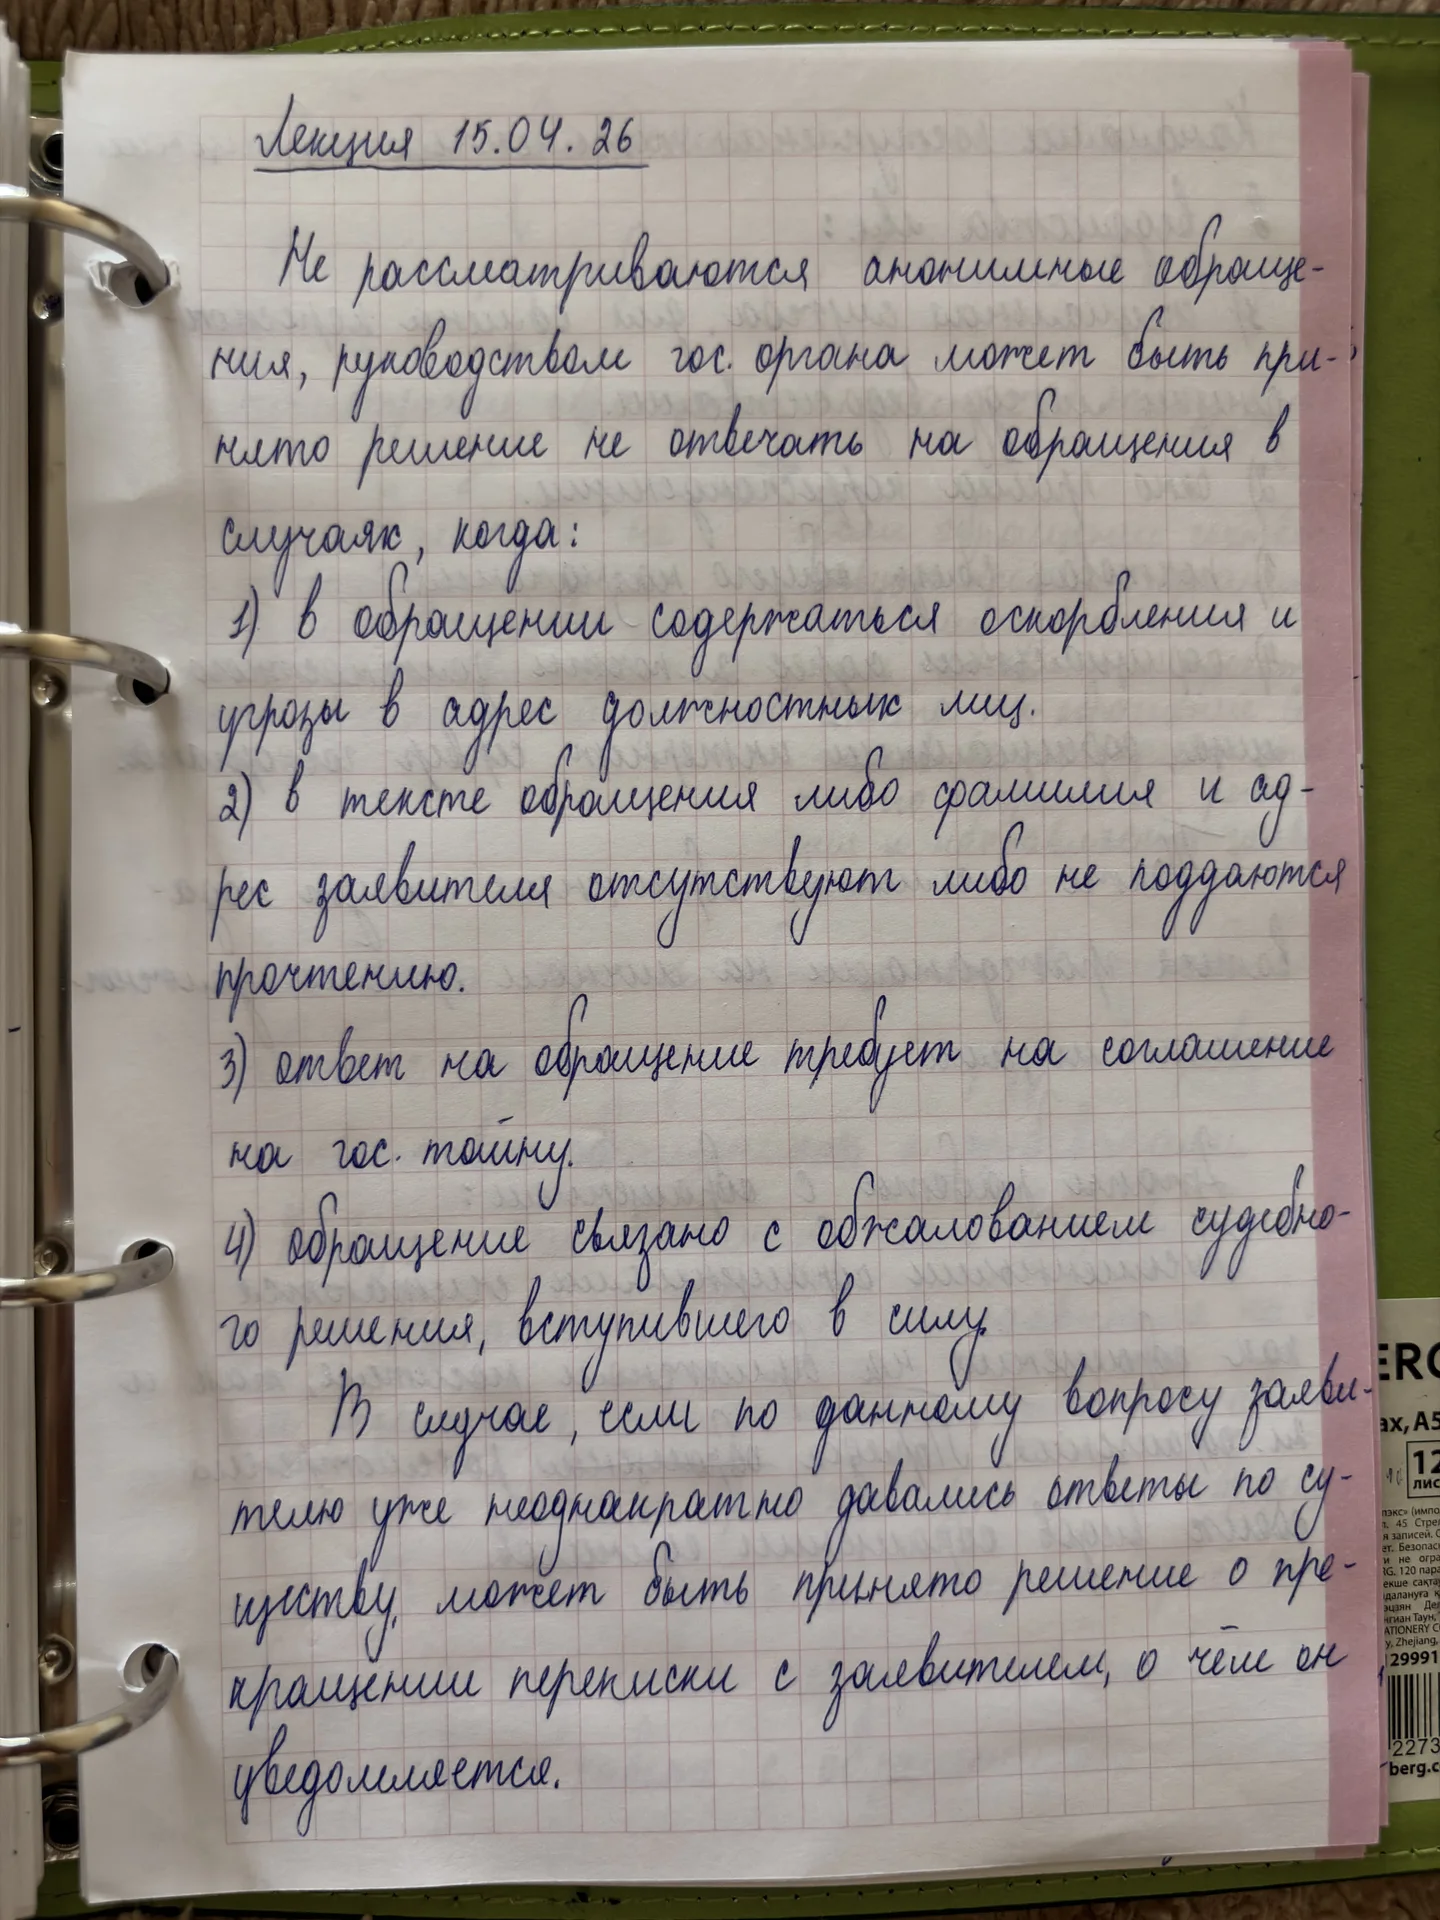 Лекция 15.04.26
Не рассматриваются анонимные обраще-
ния, руководством гос. органа может быть при-
нято решение не отвечать на обращения в
случаях, когда:
1) в обращении содержаться оскорбления и
угрозы в адрес должностных лиц.
2) в тексте обращения либо фамилия и ад-
рес заявителя отсутствуют либо не поддаются
прочтению.
3) ответ на обращение требует на соглашение
на гос. тайну.
4) обращение связано с обжалованием судебно-
го решения, вступившего в силу.
В случае, если по данному вопросу заяви-
телю уже неоднакратно давались ответы по су-
ществу, может быть принято решение о пре-
кращении переписки с заявителем, о чём он
уведомляется.
ERG
ax, A5
12
лис
45 Стре
120 пар
Zhejiang,
29991
2273
berg.c